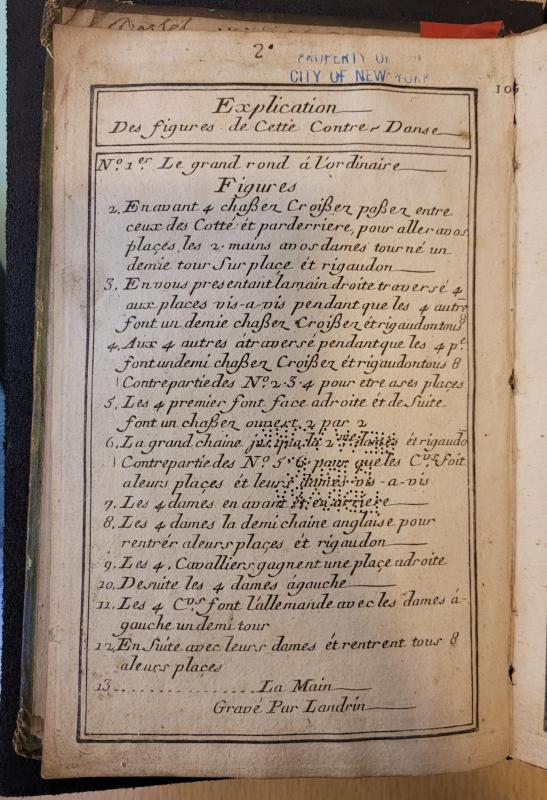 2.
PROPERTY OF
CITY OF NEW YORK
105
Explication
Des figures de Cette Contre-Danse
N.º 1.er Le grand rond á l'ordinaire
Figures
2. En avant 4 chaßez Croißez paßez entre
ceux des Cotté ét parderriere, pour aller avos
plaçes les 2. mains avos dames tourné un
demie tour Sur plaçe ét rigaudon
3. En vous presentant lamain droite traversé 4
aux places vis-a-vis pendant que les 4 autre
font un demie chaßez Croißez ét rigaudon tous 8
4. Aux 4 autres atraversé pendant que les 4 p.e
font un demi chaßez Croißez ét rigaudon tous 8
Contre partie des N.º 2. 3. 4 pour etre a ses plaçes
5. Les 4 premier font face adroite ét de Suite
font un chaßez ouvert 2 par 2
6. La grand chaine jusqu'a la 2.me dames ét rigaudo
Contrepartie des N.º 5. 6. pour que les C.vrs Soit
aleurs plaçes ét leurs dames vis-a-vis
7. Les 4 dames en avant ét en arriere
8. Les 4 dames la demi chaine anglaise pour
rentrér aleurs plaçes ét rigaudon
9. Les 4. Cavalliers gagnent une plaçe adroite
10. De suite les 4 dames ágauche
11. Les 4 C.vrs font l'allemande avec les dames á-
gauche un demi tour
12. En Suite avec leurs dames ét rentrent tous 8
aleurs plaçes
13 .................. La Main
Gravé Par Landrin